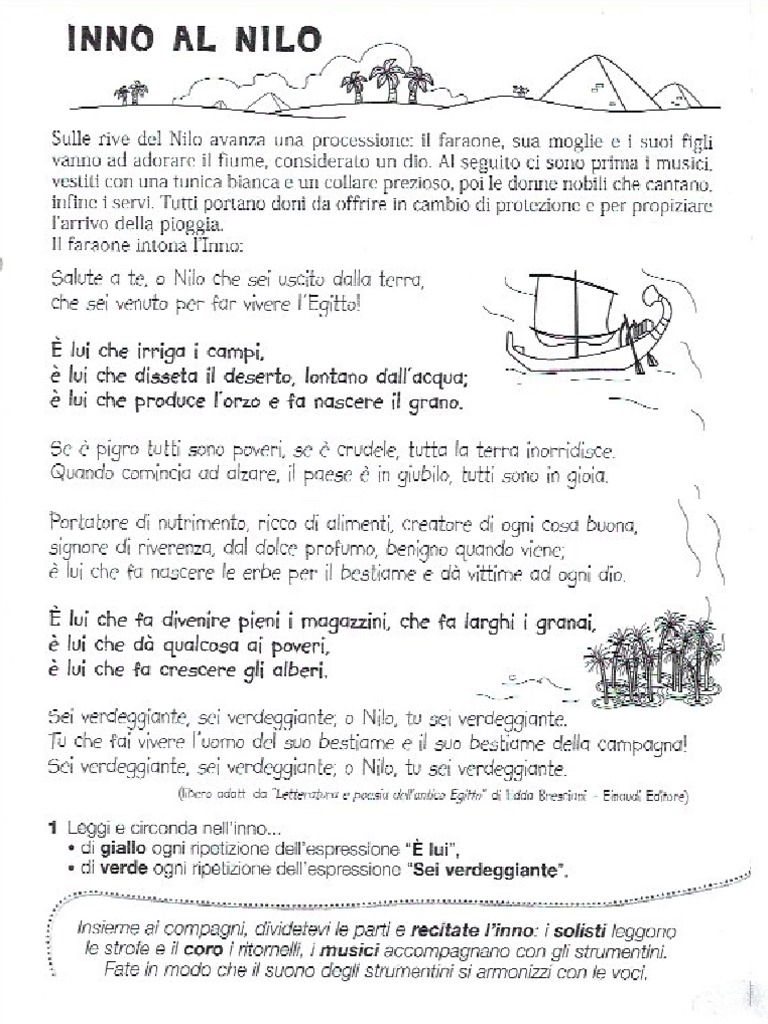 INNO AL NILO
Sulle rive del Nilo avanza una processione: il faraone, sua moglie e i suoi figli
vanno ad adorare il fiume, considerato un dio. Al seguito ci sono prima i musici,
vestiti con una tunica bianca e un collare prezioso, poi le donne nobili che cantano,
infine i servi. Tutti portano doni da offrire in cambio di protezione e per propiziare
l'arrivo della pioggia.
Il faraone intona l'Inno:
Salute a te, o Nilo che sei uscito dalla terra,
che sei venuto per far vivere l'Egitto!
È lui che irriga i campi,
è lui che disseta il deserto, lontano dall'acqua;
è lui che produce l'orzo e fa nascere il grano.
Se è pigro tutti sono poveri, se è crudele, tutta la terra inorridisce.
Quando comincia ad alzare, il paese è in giubilo, tutti sono in gioia.
Portatore di nutrimento, ricco di alimenti, creatore di ogni cosa buona,
signore di riverenza, dal dolce profumo, benigno quando viene;
è lui che fa nascere le erbe per il bestiame e dà vittime ad ogni dio.
È lui che fa divenire pieni i magazzini, che fa larghi i granai,
è lui che dà qualcosa ai poveri,
è lui che fa crescere gli alberi.
Sei verdeggiante, sei verdeggiante; o Nilo, tu sei verdeggiante.
Tu che fai vivere l'uomo del suo bestiame e il suo bestiame della campagna!
Sei verdeggiante, sei verdeggiante; o Nilo, tu sei verdeggiante.
(libero adatt. da "Letteratura e poesia dell'antico Egitto" di Edda Bresciani - Einaudi Editore)
1 Leggi e circonda nell'inno...
• di giallo ogni ripetizione dell'espressione "È lui",
• di verde ogni ripetizione dell'espressione "Sei verdeggiante".
Insieme ai compagni, dividetevi le parti e recitate l'inno: i solisti leggono
le strofe e il coro i ritornelli, i musici accompagnano con gli strumentini.
Fate in modo che il suono degli strumentini si armonizzi con le voci.